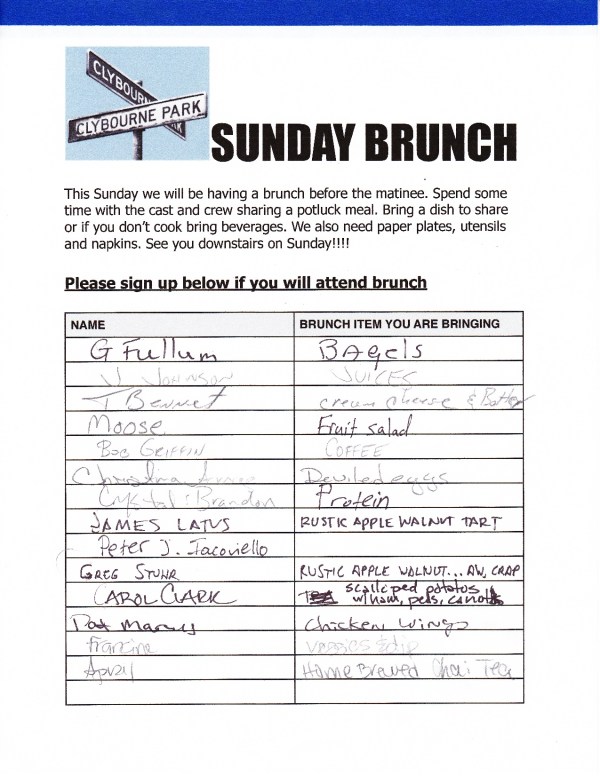 CLYBOURN
CLYBOURNE PARK
RK
SUNDAY BRUNCH
This Sunday we will be having a brunch before the matinee. Spend some
time with the cast and crew sharing a potluck meal. Bring a dish to share
or if you don't cook bring beverages. We also need paper plates, utensils
and napkins. See you downstairs on Sunday!!!!
Please sign up below if you will attend brunch
NAME BRUNCH ITEM YOU ARE BRINGING
G Fullum BAgels
J JOHNSON JUICES
T Bennet cream cheese & Butter
Moose Fruit salad
BOB GRIFFIN COFFEE
Christina Deviled eggs
Crystal & Brandon Protein
JAMES LATUS RUSTIC APPLE WALNUT TART
Peter J. Iacoviello
GREG STUHR RUSTIC APPLE WALNUT... AW, CRAP
CAROL CLARK scalloped potatos
w/ham, peas, carrots
Pat Chicken Wings
Francine veggies & dip
April Home Brewed Chai Tea